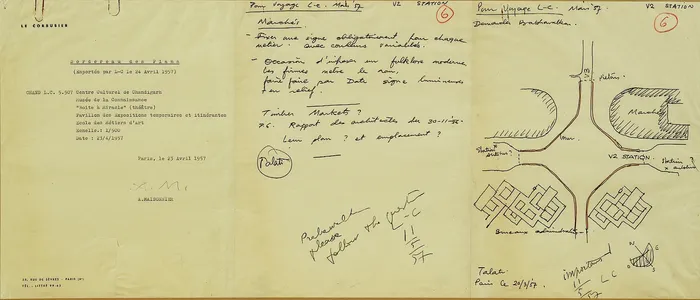 LE CORBUSIER
BORDEREAU DES PLANS
(Emportés par L-C le 24 Avril 1957)
CHAND L.C. 5.507 Centre Culturel de Chandigarh
Musée de la Connaissance
"Boîte à Miracle" (théâtre)
Pavillon des Expositions temporaires et itinérantes
Ecole des Métiers d'art
Echelle: 1/500
Date : 23/4/1957
Paris, le 23 Avril 1957
A.MAISONNIER
35, RUE DE SÈVRES - PARIS (6e)
TÉL. : LITTRÉ 99-62
Pour Voyage L-C. Mars '57
V2 STATION
6
Marchés
- Fixer une signe obligatoirement pour chaque
métier. avec couleurs variables.
- Occasion d'imposer un folklore moderne
les firmes le nom,
faire par Date signe lumineuses
en relief.
Timber Markets ?
Rapport des architectes du 30-11-56
Leur plan ? et emplacement ?
Talati
Prabawalkar
please
follow the question
L-C
11
5
57
Pour Voyage L-C. Mars '57
V2 STATION
6
Demander Prabhawalkar.
V3
Marché
Station
V2 STATION.
Station
Bureaux administratifs
N
E
S
O
Talati
Paris le 20/3/57.
important
11
5
57
L-C